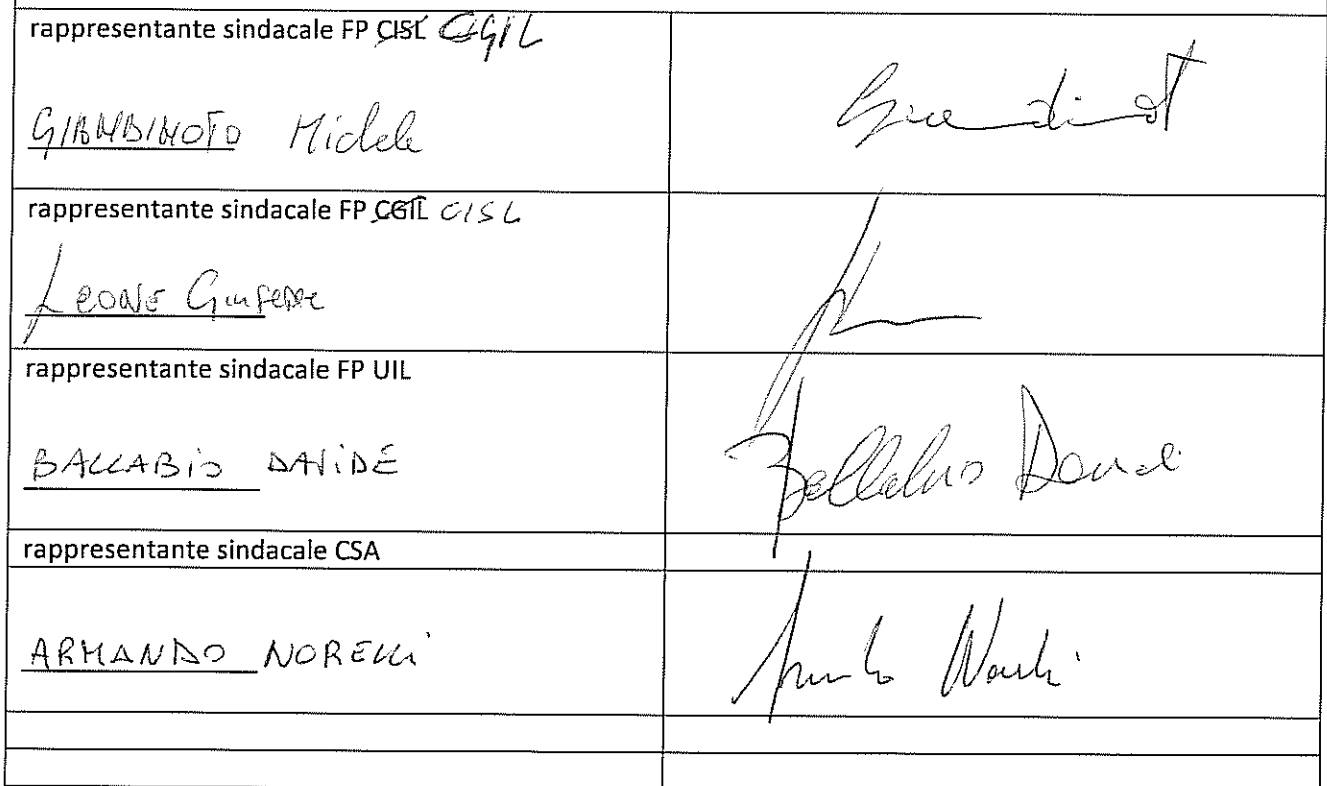 rappresentante sindacale FP CISL CGIL
GIAMBINOTO Michele
rappresentante sindacale FP CGIL CISL
LEONE Giuseppe
rappresentante sindacale FP UIL
BALLABIO DAVIDE
Ballabio David
rappresentante sindacale CSA
ARMANDO NORELLI